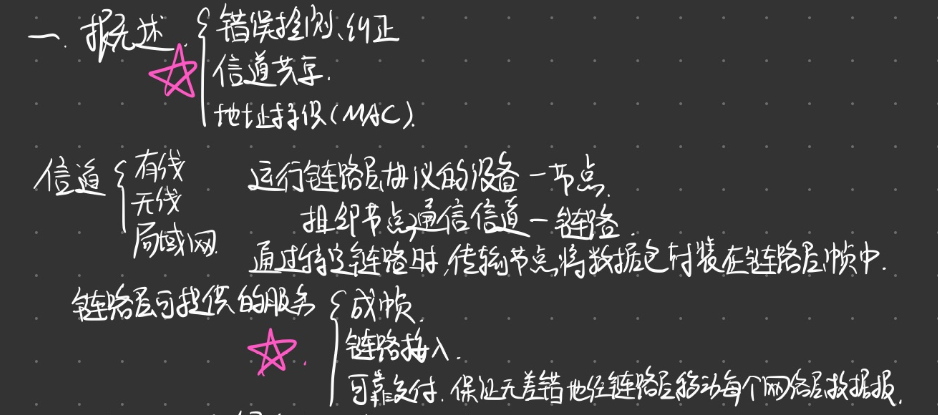 一. 概述 { 错误检测、纠正
信道共享.
地址提供(MAC).
信道 { 有线
无线
局域网
运行链路层协议的设备—节点.
相邻节点通信信道—链路.
通过特定链路时,传输节点将数据包封装在链路层帧中.
链路层可提供的服务 { 成帧.
链路接入.
可靠交付.保证无差错地经链路层移动每个网络层数据报.